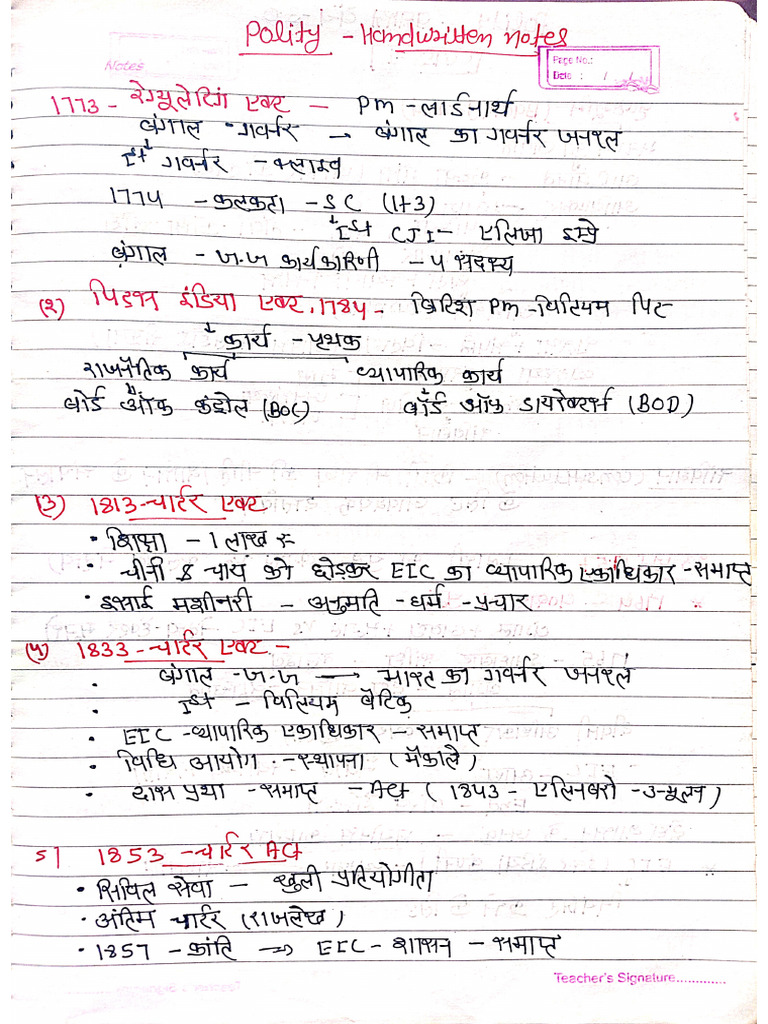 Polity - Handwritten notes
Notes
Page No.:
Date : / /
1773 - रेग्यूलेटिंग एक्ट - Pm - लार्डनार्थ
बंगाल - गवर्नर → बंगाल का गवर्नर जनरल
Ist गवर्नर - क्लाइव
1774 - कलकता - SC (1+3)
Ist CJI - एलिजा इम्पे
बंगाल - ज.ज कार्यकारिणी - 4 सदस्य
(2) पिट्स इंडिया एक्ट, 1784 - ब्रिटिश Pm - विलियम पिट
कार्य - पृथक
राजनैतिक कार्य व्यापारिक कार्य
बोर्ड ऑफ कंट्रोल (BOC) बोर्ड ऑफ डायरेक्टर्स (BOD)
(3) 1813 - चार्टर एक्ट
• शिक्षा - 1 लाख रू
• चीनी & चाय को छोड़कर EIC का व्यापारिक एकाधिकार - समाप्त
• इसाई मशीनरी - अनुमति - धर्म - प्रचार
(4) 1833 - चार्टर एक्ट -
• बंगाल - ज.ज → भारत का गवर्नर जनरल
• Ist - विलियम बैंटिक
• EIC - व्यापारिक एकाधिकार - समाप्त
• विधि आयोग - स्थापना (मैकाले)
• दास प्रथा - समाप्त - Act ( 1843 - एलिनबरो - उन्मूलन )
5) 1853 - चार्टर Act
• सिविल सेवा - खुली प्रतियोगीता
• अंतिम चार्टर (राजलेख)
• 1857 - क्रांति → EIC - शासन - समाप्त
Teacher's Signature.............